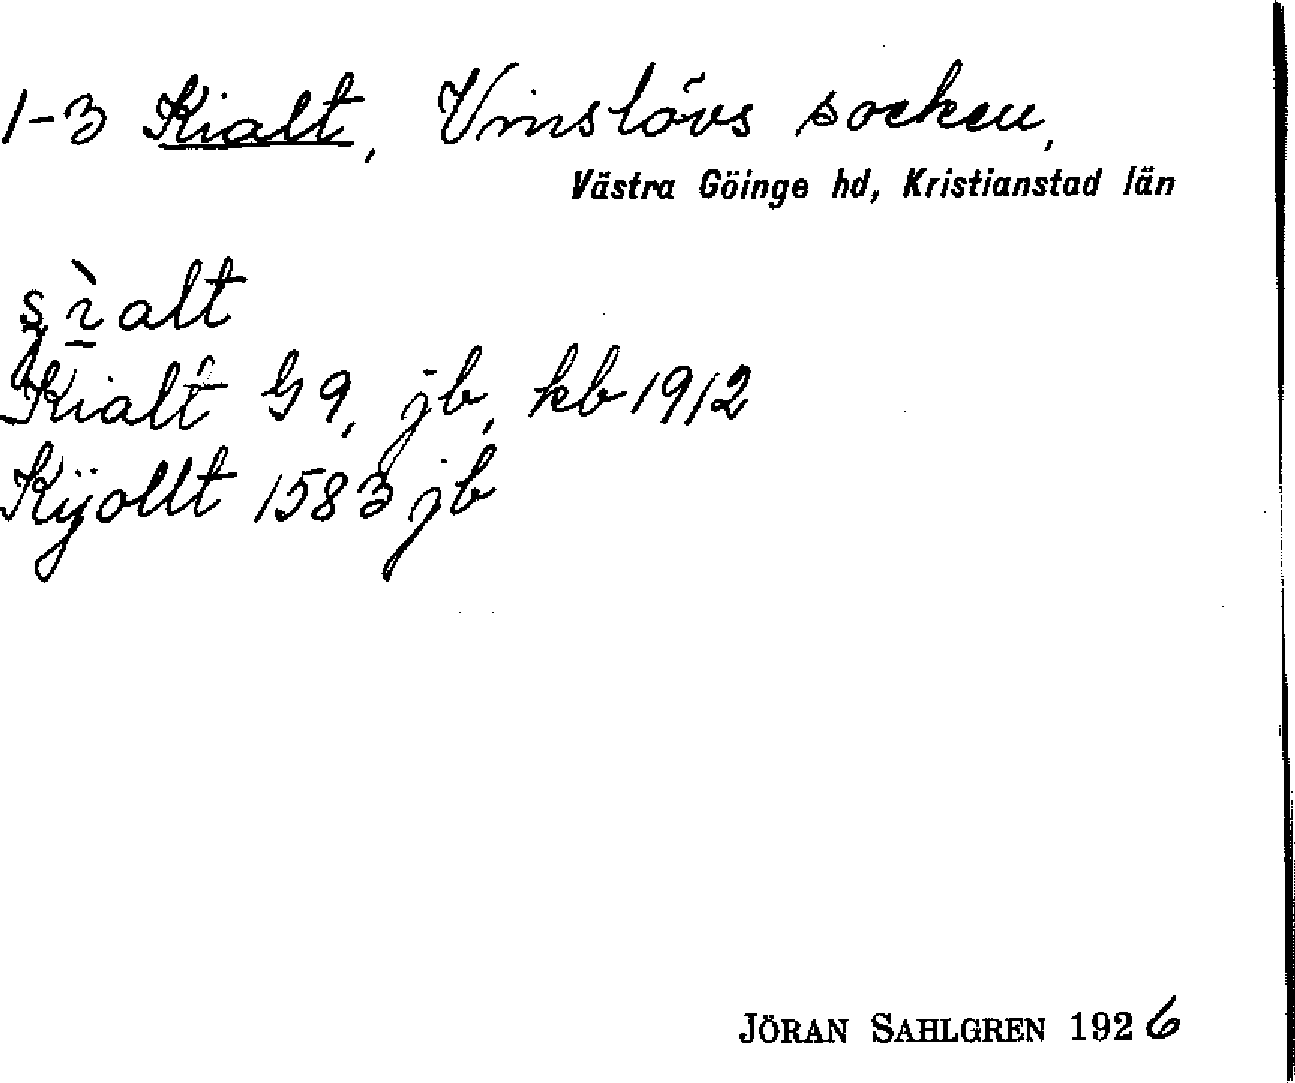 1-3 Kialt, Vinslövs socken,
Västra Göinge hd, Kristianstad län
Kialt G 9, jb, kb 1912
Kÿollt 1583 jb
JÖRAN SAHLGREN 1926